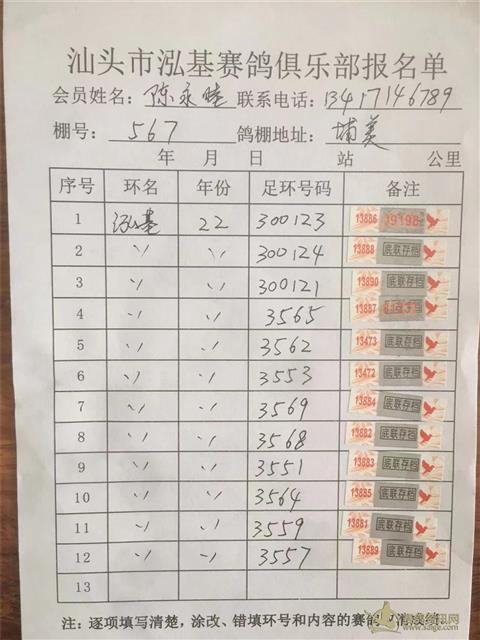 汕头市泓基赛鸽俱乐部报名单
会员姓名：陈永睦 联系电话：13417146789
棚号：567 鸽棚地址：埔美
年 月 日 站 公里
序号 环名 年份 足环号码 备注
1 泓基 22 300123 13886 39198
2 〃 〃 300124 13888 底联存档
3 〃 〃 300121 13890 底联存档
4 〃 〃 3565 13887
5 〃 〃 3562 13473 底联存档
6 〃 〃 3553 13472 底联存档
7 〃 〃 3569 13884 底联存档
8 〃 〃 3568 13882 底联存档
9 〃 〃 3551 13883 底联存档
10 〃 〃 3564 13885 底联存档
11 〃 〃 3559 13881 底联存档
12 〃 〃 3557 13889 底联存档
13
注：逐项填写清楚，涂改、错填环号和内容的赛鸽取消成绩.